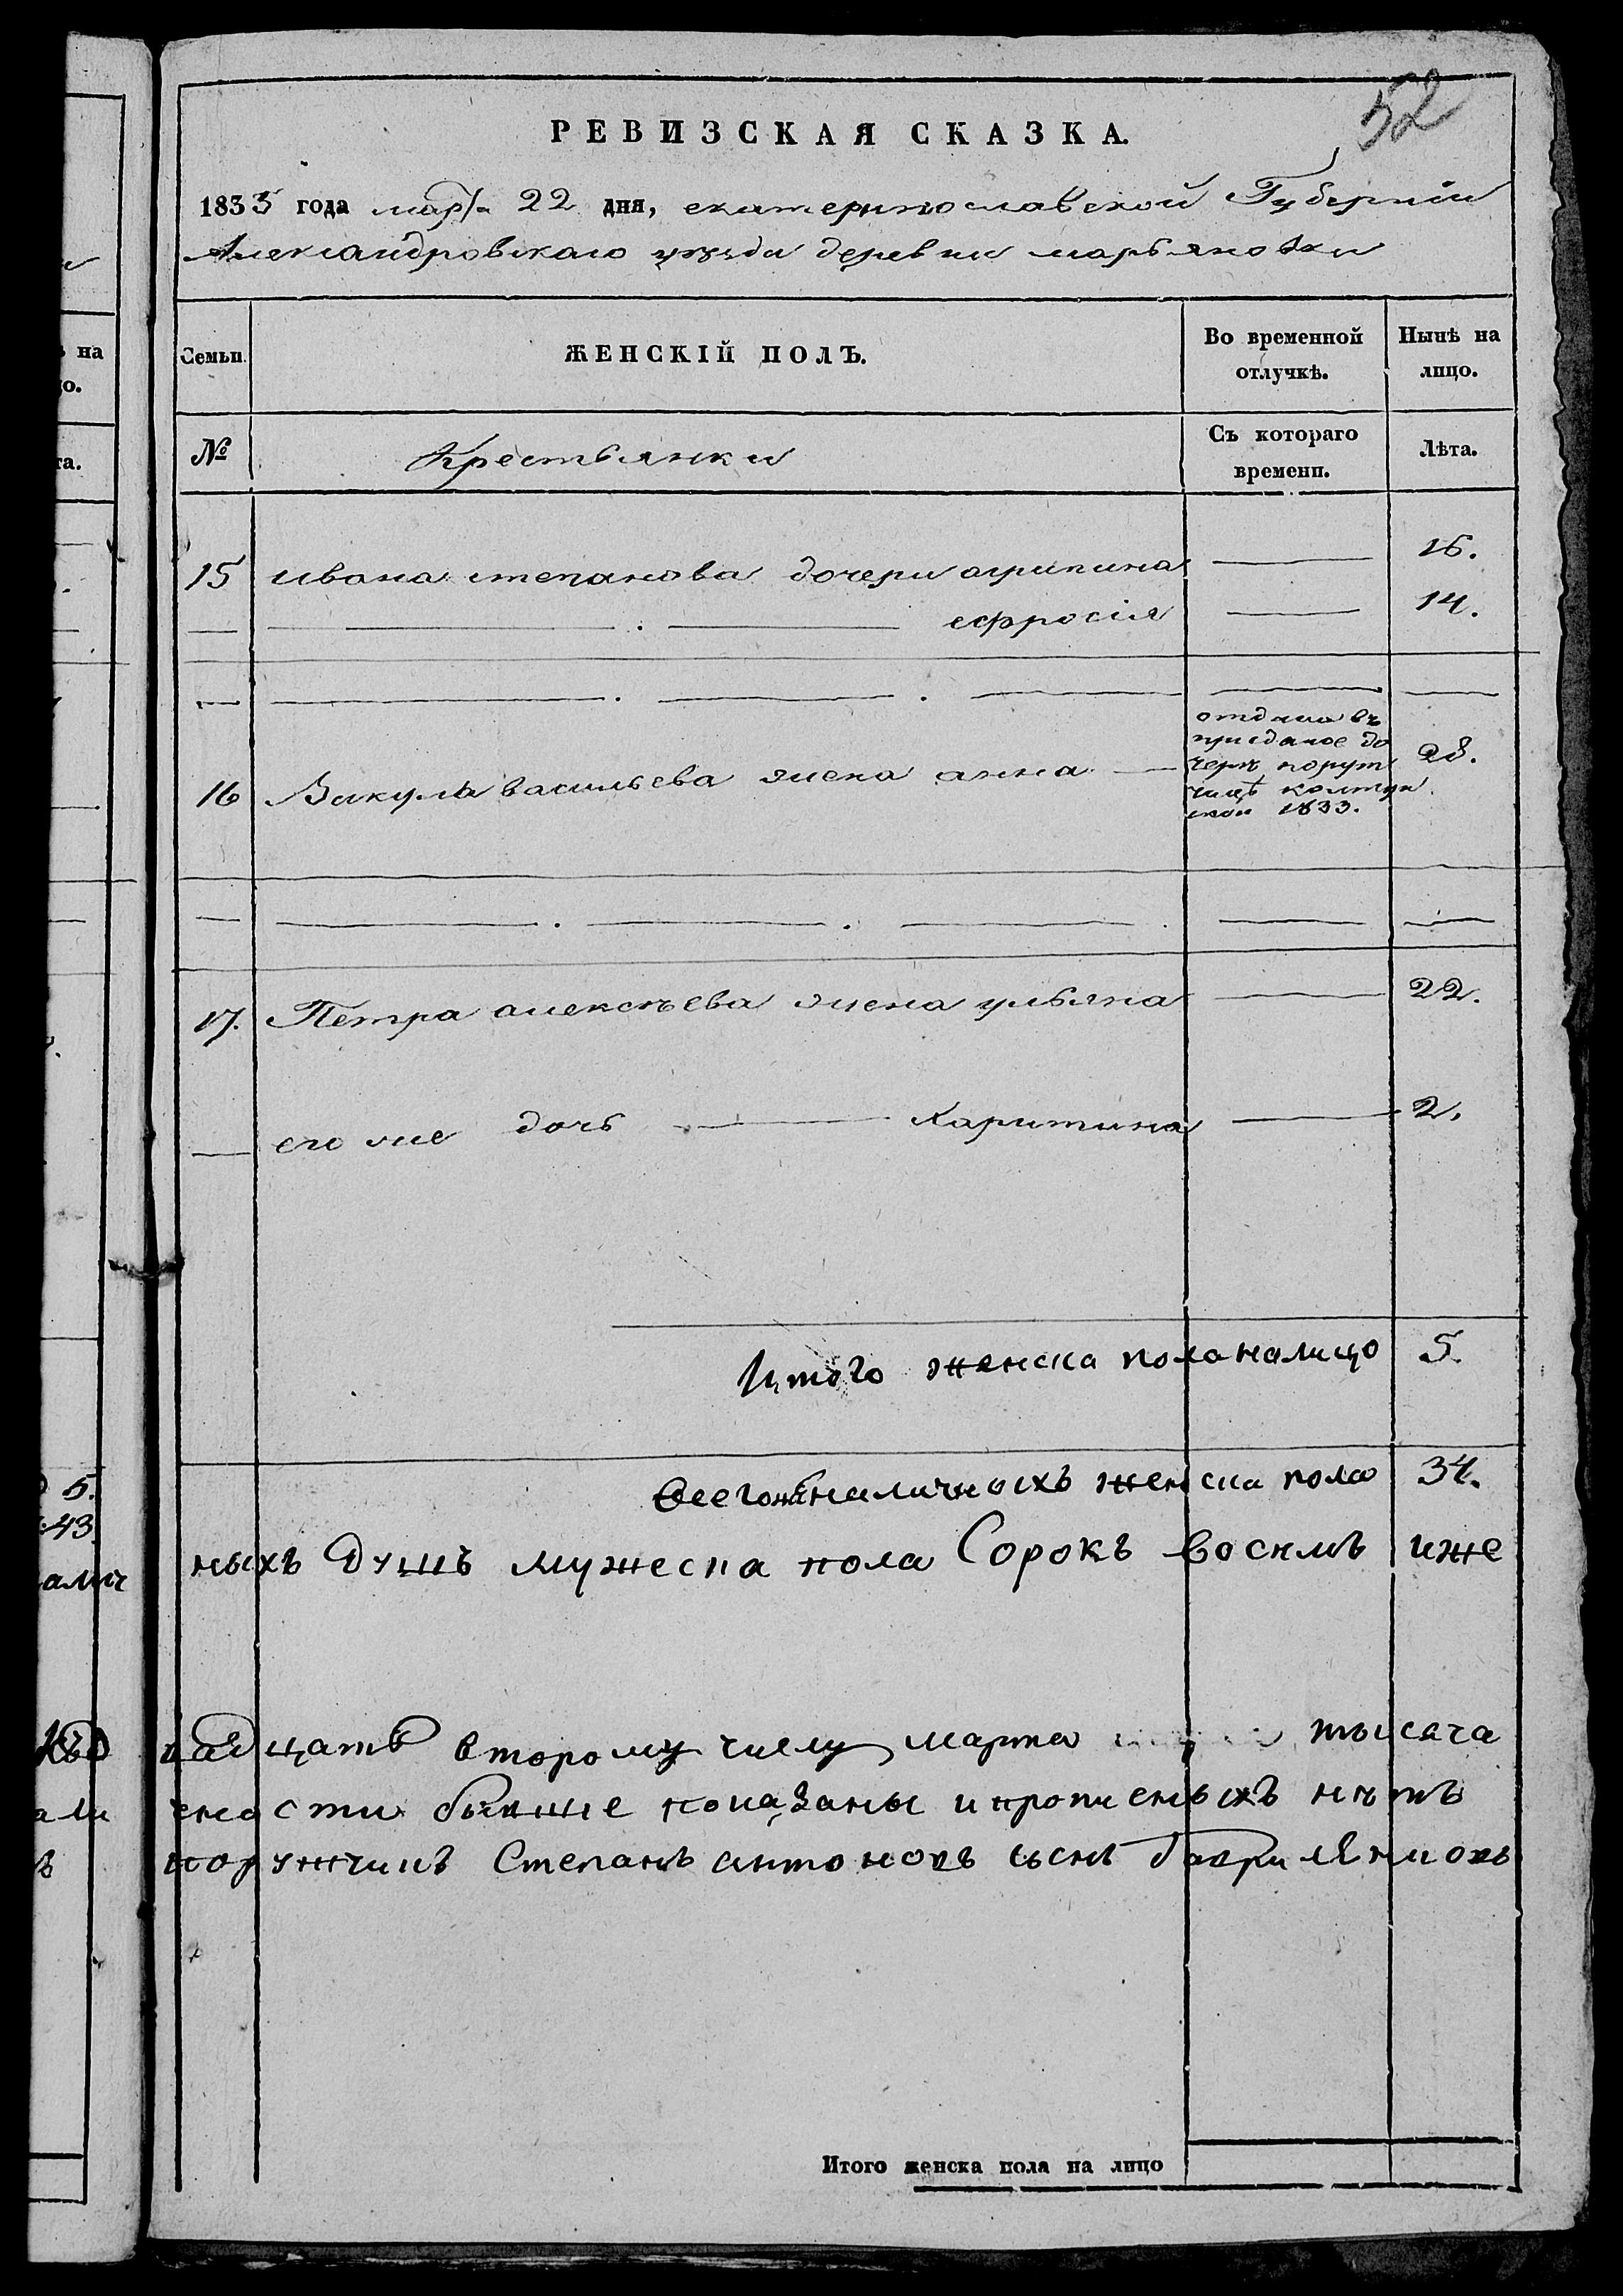 52
РЕВИЗСКАЯ СКАЗКА.
1835 года марта 22 дня, екатеринославской Губерніи
Александровскаго уѣзда деревни марьяновки
Семьи.
ЖЕНСКІЙ ПОЛЪ.
Во временной отлучкѣ.
Нынѣ на лицо.
№
Крестьянки
Съ котораго времени.
Лѣта.
15 ивана степанова дочери агрипина — 16.
— — . — ефросія — 14.
— — . — . — — —
отдана въ
приданое до
черѣ порут
чицѣ
1833.
16 Викула васильева жена анна — 28.
— — . — . — . — —
17. Петра алексѣева жена ульяна — 22.
— его же дочь — харитина — 2.
Итого женска пола налицо 5.
Всего наличныхъ женска пола 34.
ныхъ душъ мужеска пола Сорокъ восимъ и же
дцать второму числу марта тысяча
ности бывше показаны и прописныхъ нѣтъ
поружчикъ Степанъ антоновъ сынъ
Итого женска пола на лицо
ъ на
о.
та.
5.
43